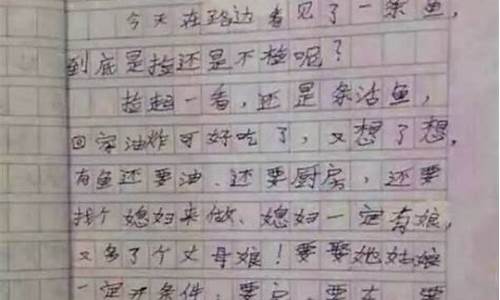 今天在路边看见了一条鱼,
到底是捡还是不捡呢?
捡起一看,还是条活鱼,
回家油炸可好吃了,又想了想,
有鱼还要油、还要厨房,还要
找个媳妇来做、媳妇一定有娘,
又多了个丈母娘!要娶她姑娘
一定开条件,要户,要车,要